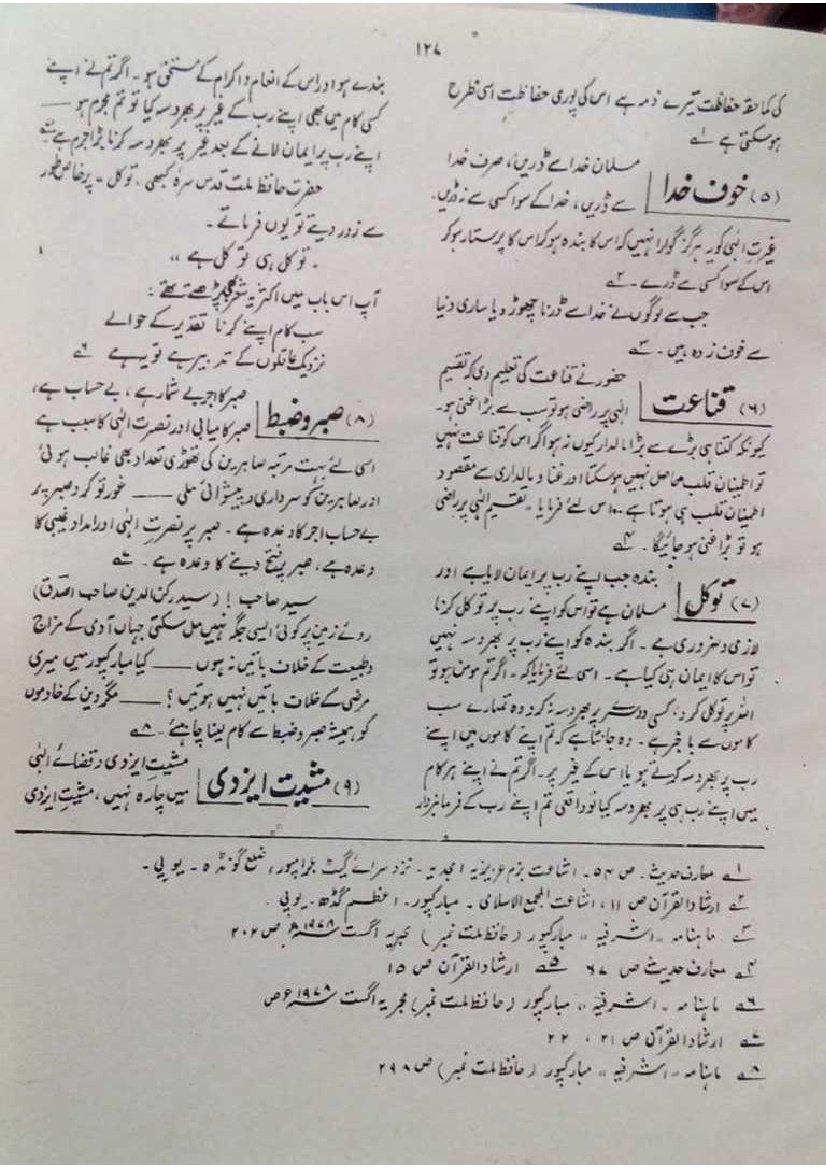 ۱۲۷
کی کما حقہ حفاظت تیرے ذمہ ہے اس کی پوری حفاظت اسی طرح
ہوسکتی ہے ۱؎
(۵) خوف خدا
مسلمان خدا سے ڈریں، صرف خدا
سے ڈریں، خدا کے سوا کسی سے نہ ڈریں۔
غیرتِ الٰہی کو یہ ہرگز گوارا نہیں کہ اس کا بندہ ہو کر اس کا پرستار ہو کر
اس کے سوا کسی سے ڈرے۔ ۲؎
جب سے لوگوں نے خدا سے ڈرنا چھوڑ دیا ساری دنیا
سے خوف زدہ ہیں۔ ۳؎
(۶) قناعت
حضور نے قناعت کی تعلیم دی کہ تقسیم
الٰہی پر راضی ہو تو سب سے بڑا غنی ہو۔
کیونکہ کتنا ہی بڑے سے بڑا مالدار کیوں نہ ہو اگر اس کو قناعت نہیں
تو اطمینان قلب حاصل نہیں ہوسکتا اور غنا و مالداری سے مقصود
اطمینان قلب ہی ہوتا ہے۔ اس لئے فرمایا۔ تقسیم الٰہی پر راضی
ہو تو بڑا غنی ہو جائیگا۔ ۴؎
(۷) توکل
بندہ جب اپنے رب پر ایمان لایا ہے اور
مسلمان ہے تو اس کو اپنے رب پر توکل کرنا
لازمی و ضروری ہے۔ اگر بندہ کو اپنے رب پر بھروسہ نہیں
تو اس کا ایمان ہی کیا ہے۔ اسی لئے فرمایا کہ۔ اگر تم مومن ہو تو
اللہ پر توکل کرو، کسی دوسرے پر بھروسہ نہ کرو وہ تمہارے سب
کاموں سے باخبر ہے۔ وہ جانتا ہے کہ تم اپنے کاموں میں اپنے
رب پر بھروسہ کرتے ہو یا اس کے غیر پر۔ اگر تم نے اپنے ہر کام
میں اپنے رب ہی پر بھروسہ کیا تو واقعی تم اپنے رب کے فرمانبردار
بندے ہو اور اس کے انعام و اکرام کے مستحق ہو۔ اگر تم نے اپنے
کسی کام میں بھی اپنے رب کے غیر پر بھروسہ کیا تو تم مجرم ہو ——
اپنے رب پر ایمان لانے کے بعد غیر پر بھروسہ کرنا بڑا جرم ہے ۵؎
حضرت حافظ ملت قدس سرہٗ کبھی۔ توکل۔ پر خاص طور
سے زور دیتے تو یوں فرماتے۔
۔ توکل ہی تو کل ہے ،،
آپ اس باب میں اکثر یہ شعر پڑھتے تھے؛
سب کام اپنے کرنا تقدیر کے حوالے
نزدیک عاقلوں کے تدبیر ہے تو یہ ہے ۶؎
(۸) صبر و ضبط
صبر کا اجر بے شمار ہے، بے حساب ہے،
صبر کامیابی اور نصرت الٰہی کا سبب ہے
اسی لئے بہت مرتبہ صابرین کی تھوڑی تعداد بھی غالب ہوئی
اور صابرین کو سرداری و پیشوائی ملی —— غور تو کرو صبر پر
بے حساب اجر کا وعدہ ہے۔ صبر پر نصرتِ الٰہی اور امداد غیبی کا
وعدہ ہے، صبر پر فتح دینے کا وعدہ ہے۔ ۷؎
سید صاحب! (سید رکن الدین صاحب اصدق)
روئے زمین پر کوئی ایسی جگہ نہیں مل سکتی جہاں آدمی کے مزاج
و طبیعت کے خلاف باتیں نہ ہوں —— کیا مبارکپور میں میری
مرضی کے خلاف باتیں نہیں ہوتیں؟ —— مگر دین کے خادموں
کو ہمیشہ صبر و ضبط سے کام لینا چاہئے۔ ۸؎
(۹) مشیت ایزدی
مشیتِ ایزدی و قضائے الٰہی
میں چارہ نہیں، مشیتِ ایزدی
۱؎ معارف حدیث۔ ص ۵۴۔ اشاعت بزم عزیزیہ امجدیہ۔ نزد سرائے گیٹ بلرامپور، ضلع گونڈہ ۔ یوپی۔
۲؎ ارشاد القرآن ص ۱۱، اشاعت المجمع الاسلامی۔ مبارکپور۔ اعظم گڈھ۔ یوپی۔
۳؎ ماہنامہ ،،اشرفیہ،، مبارکپور (حافظ ملت نمبر) مجریہ اگست ۱۹۷۸ء ص ۲۰۲
۴؎ معارف حدیث ص ۶۷ ۵؎ ارشاد القرآن ص ۱۵
۶؎ ماہنامہ ۔اشرفیہ،، مبارکپور (حافظ ملت نمبر) مجریہ اگست ۱۹۷۸ء ص
۷؎ ارشاد القرآن ص ۲۱ ، ۲۲
۸؎ ماہنامہ ،،اشرفیہ،، مبارکپور (حافظ ملت نمبر) ص ۲۹۸